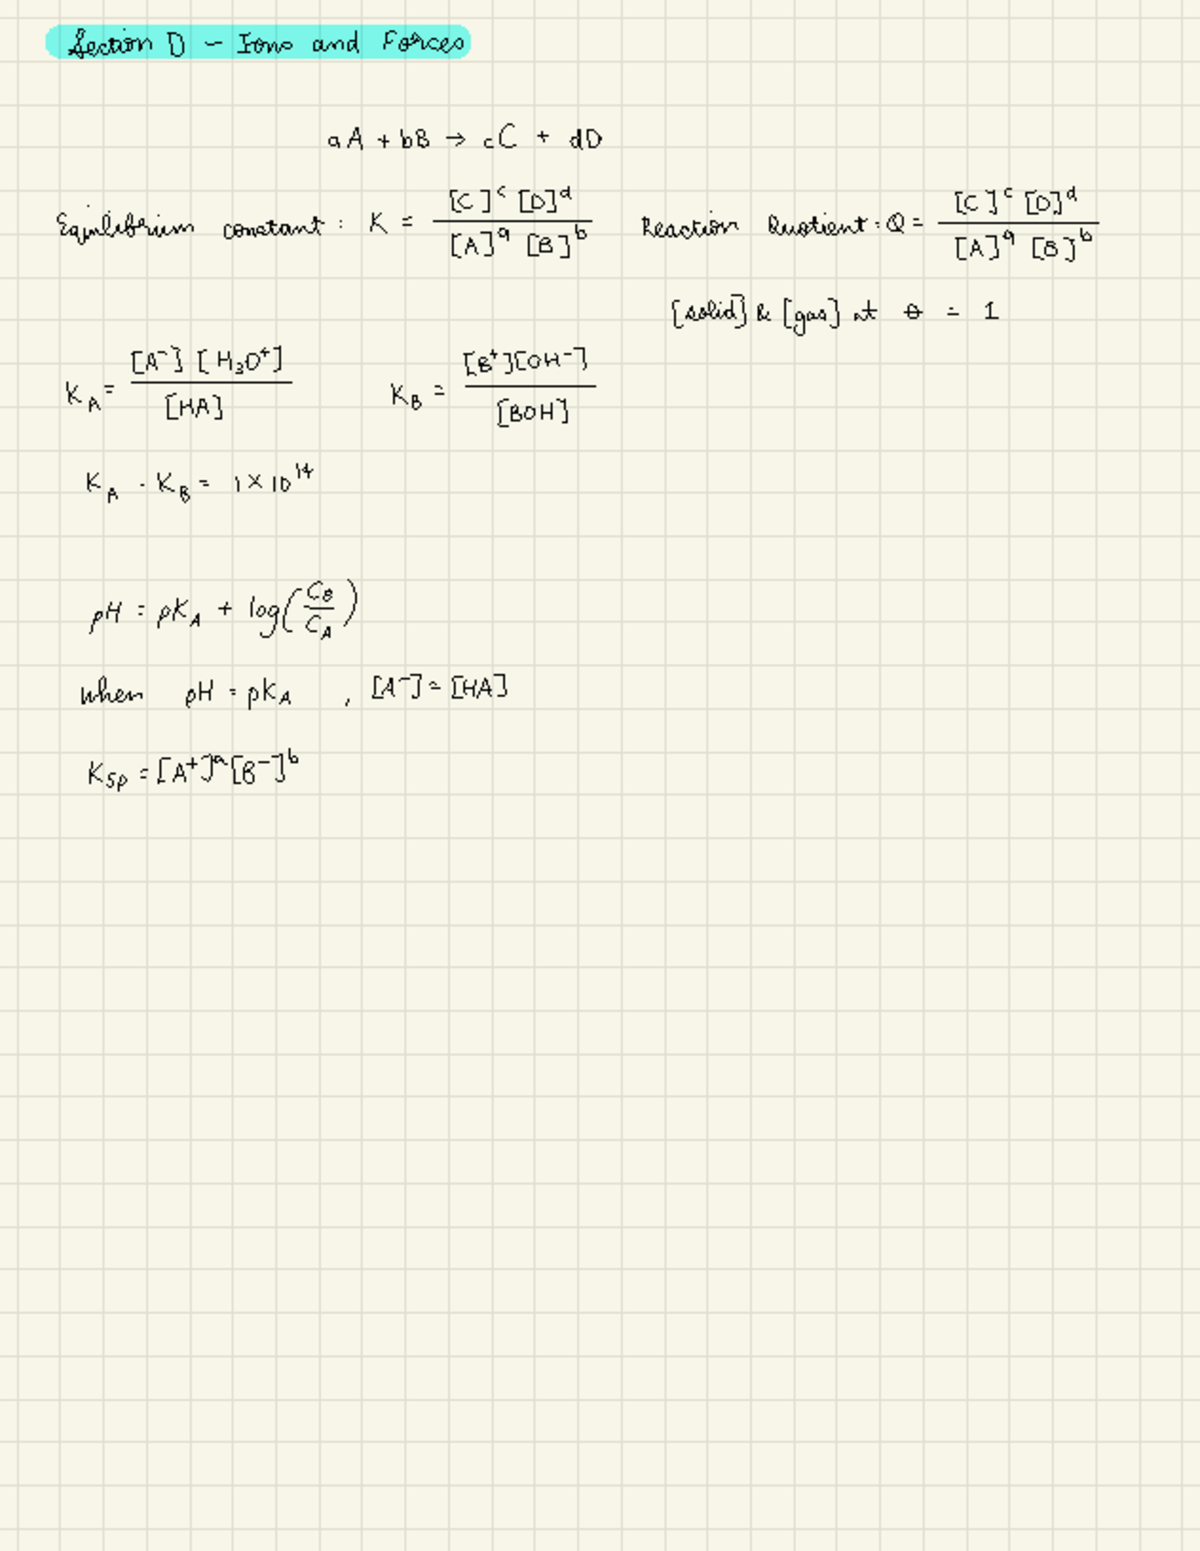 Section D – Ions and Forces
aA + bB → cC + dD
Equilibrium constant : K = [C]^c [D]^d / [A]^a [B]^b
Reaction Quotient : Q = [C]^c [D]^d / [A]^a [B]^b
[solid] & [gas] at ⦵ = 1
K_A = [A⁻] [H₃O⁺] / [HA]
K_B = [B⁺][OH⁻] / [BOH]
K_A · K_B = 1 × 10^14
pH = pK_A + log(C_B / C_A)
when pH = pK_A , [A⁻] = [HA]
K_sp = [A⁺]^a [B⁻]^b